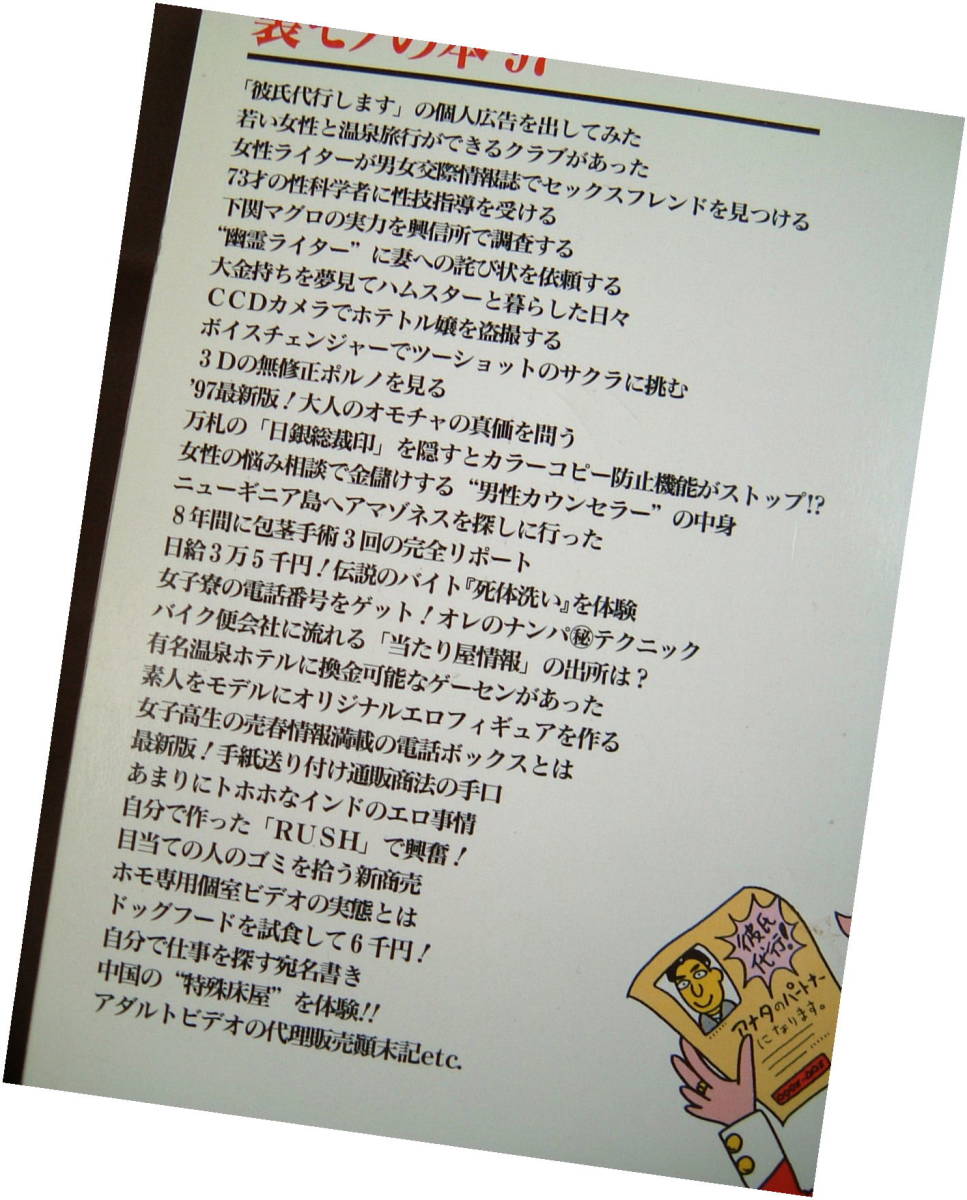 裏モノの本 '97
「彼氏代行します」の個人広告を出してみた
若い女性と温泉旅行ができるクラブがあった
女性ライターが男女交際情報誌でセックスフレンドを見つける
73才の性科学者に性技指導を受ける
下関マグロの実力を興信所で調査する
“幽霊ライター”に妻への詫び状を依頼する
大金持ちを夢見てハムスターと暮らした日々
CCDカメラでホテトル嬢を盗撮する
ボイスチェンジャーでツーショットのサクラに挑む
3Dの無修正ポルノを見る
'97最新版!大人のオモチャの真価を問う
万札の「日銀総裁印」を隠すとカラーコピー防止機能がストップ!?
女性の悩み相談で金儲けする“男性カウンセラー”の中身
ニューギニア島へアマゾネスを探しに行った
8年間に包茎手術3回の完全リポート
日給3万5千円!伝説のバイト『死体洗い』を体験
女子寮の電話番号をゲット!オレのナンパ㊙テクニック
バイク便会社に流れる「当たり屋情報」の出所は?
有名温泉ホテルに換金可能なゲーセンがあった
素人をモデルにオリジナルエロフィギュアを作る
女子高生の売春情報満載の電話ボックスとは
最新版!手紙送り付け通販商法の手口
あまりにトホホなインドのエロ事情
自分で作った「RUSH」で興奮!
目当ての人のゴミを拾う新商売
ホモ専用個室ビデオの実態とは
ドッグフードを試食して6千円!
自分で仕事を探す宛名書き
中国の“特殊床屋”を体験!!
アダルトビデオの代理販売顛末記etc.
彼氏
代行!
アナタのパートナー
になります。